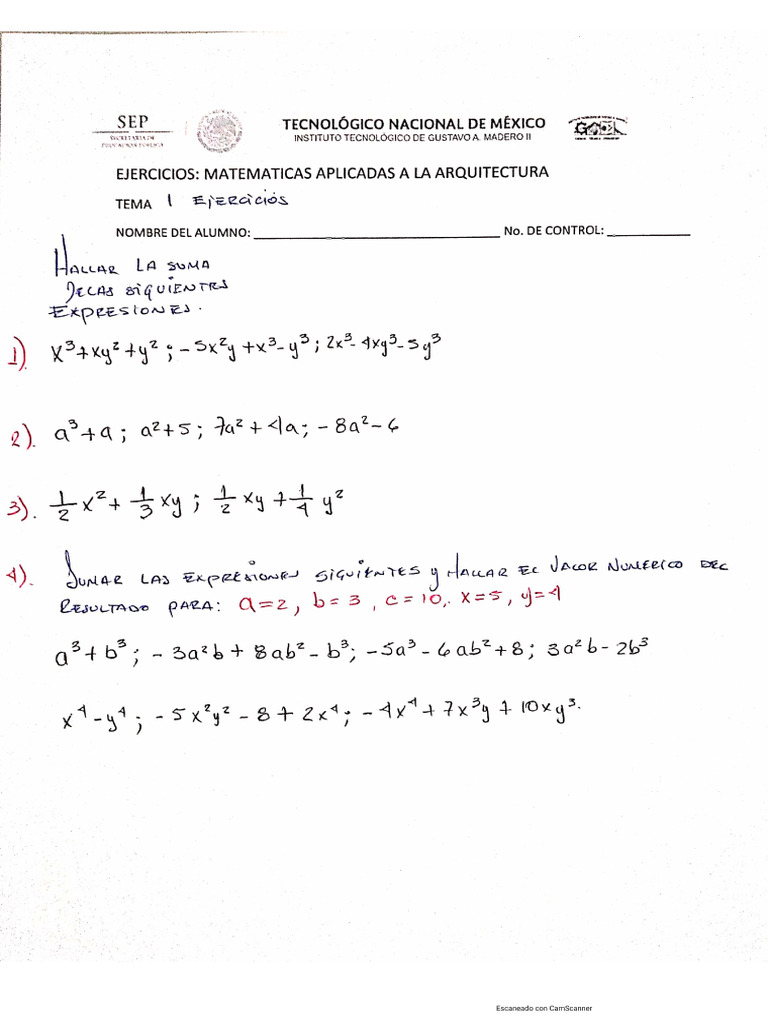 SEP
SECRETARÍA DE
EDUCACIÓN PÚBLICA
TECNOLÓGICO NACIONAL DE MÉXICO
INSTITUTO TECNOLÓGICO DE GUSTAVO A. MADERO II
EJERCICIOS: MATEMATICAS APLICADAS A LA ARQUITECTURA
TEMA 1 EJERCICIOS
NOMBRE DEL ALUMNO: ____________ No. DE CONTROL: ____________
HALLAR LA SUMA
DE LAS SIGUIENTES
EXPRESIONES.
1). x³+xy²+y² ; -5x²y+x³-y³ ; 2x³-4xy³-5y³
2). a³+a ; a²+5 ; 7a²+4a ; -8a²-6
3). 1/2 x² + 1/3 xy ; 1/2 xy + 1/4 y²
4). SUMAR LAS EXPRESIONES SIGUIENTES y HALLAR EL VALOR NUMERICO DEL
RESULTADO PARA: a=2, b=3, c=10, x=5, y=4
a³+b³ ; -3a²b+8ab²-b³ ; -5a³-6ab²+8 ; 3a²b-2b³
x⁴-y⁴ ; -5x²y²-8+2x⁴ ; -4x⁴+7x³y+10xy³.
Escaneado con CamScanner